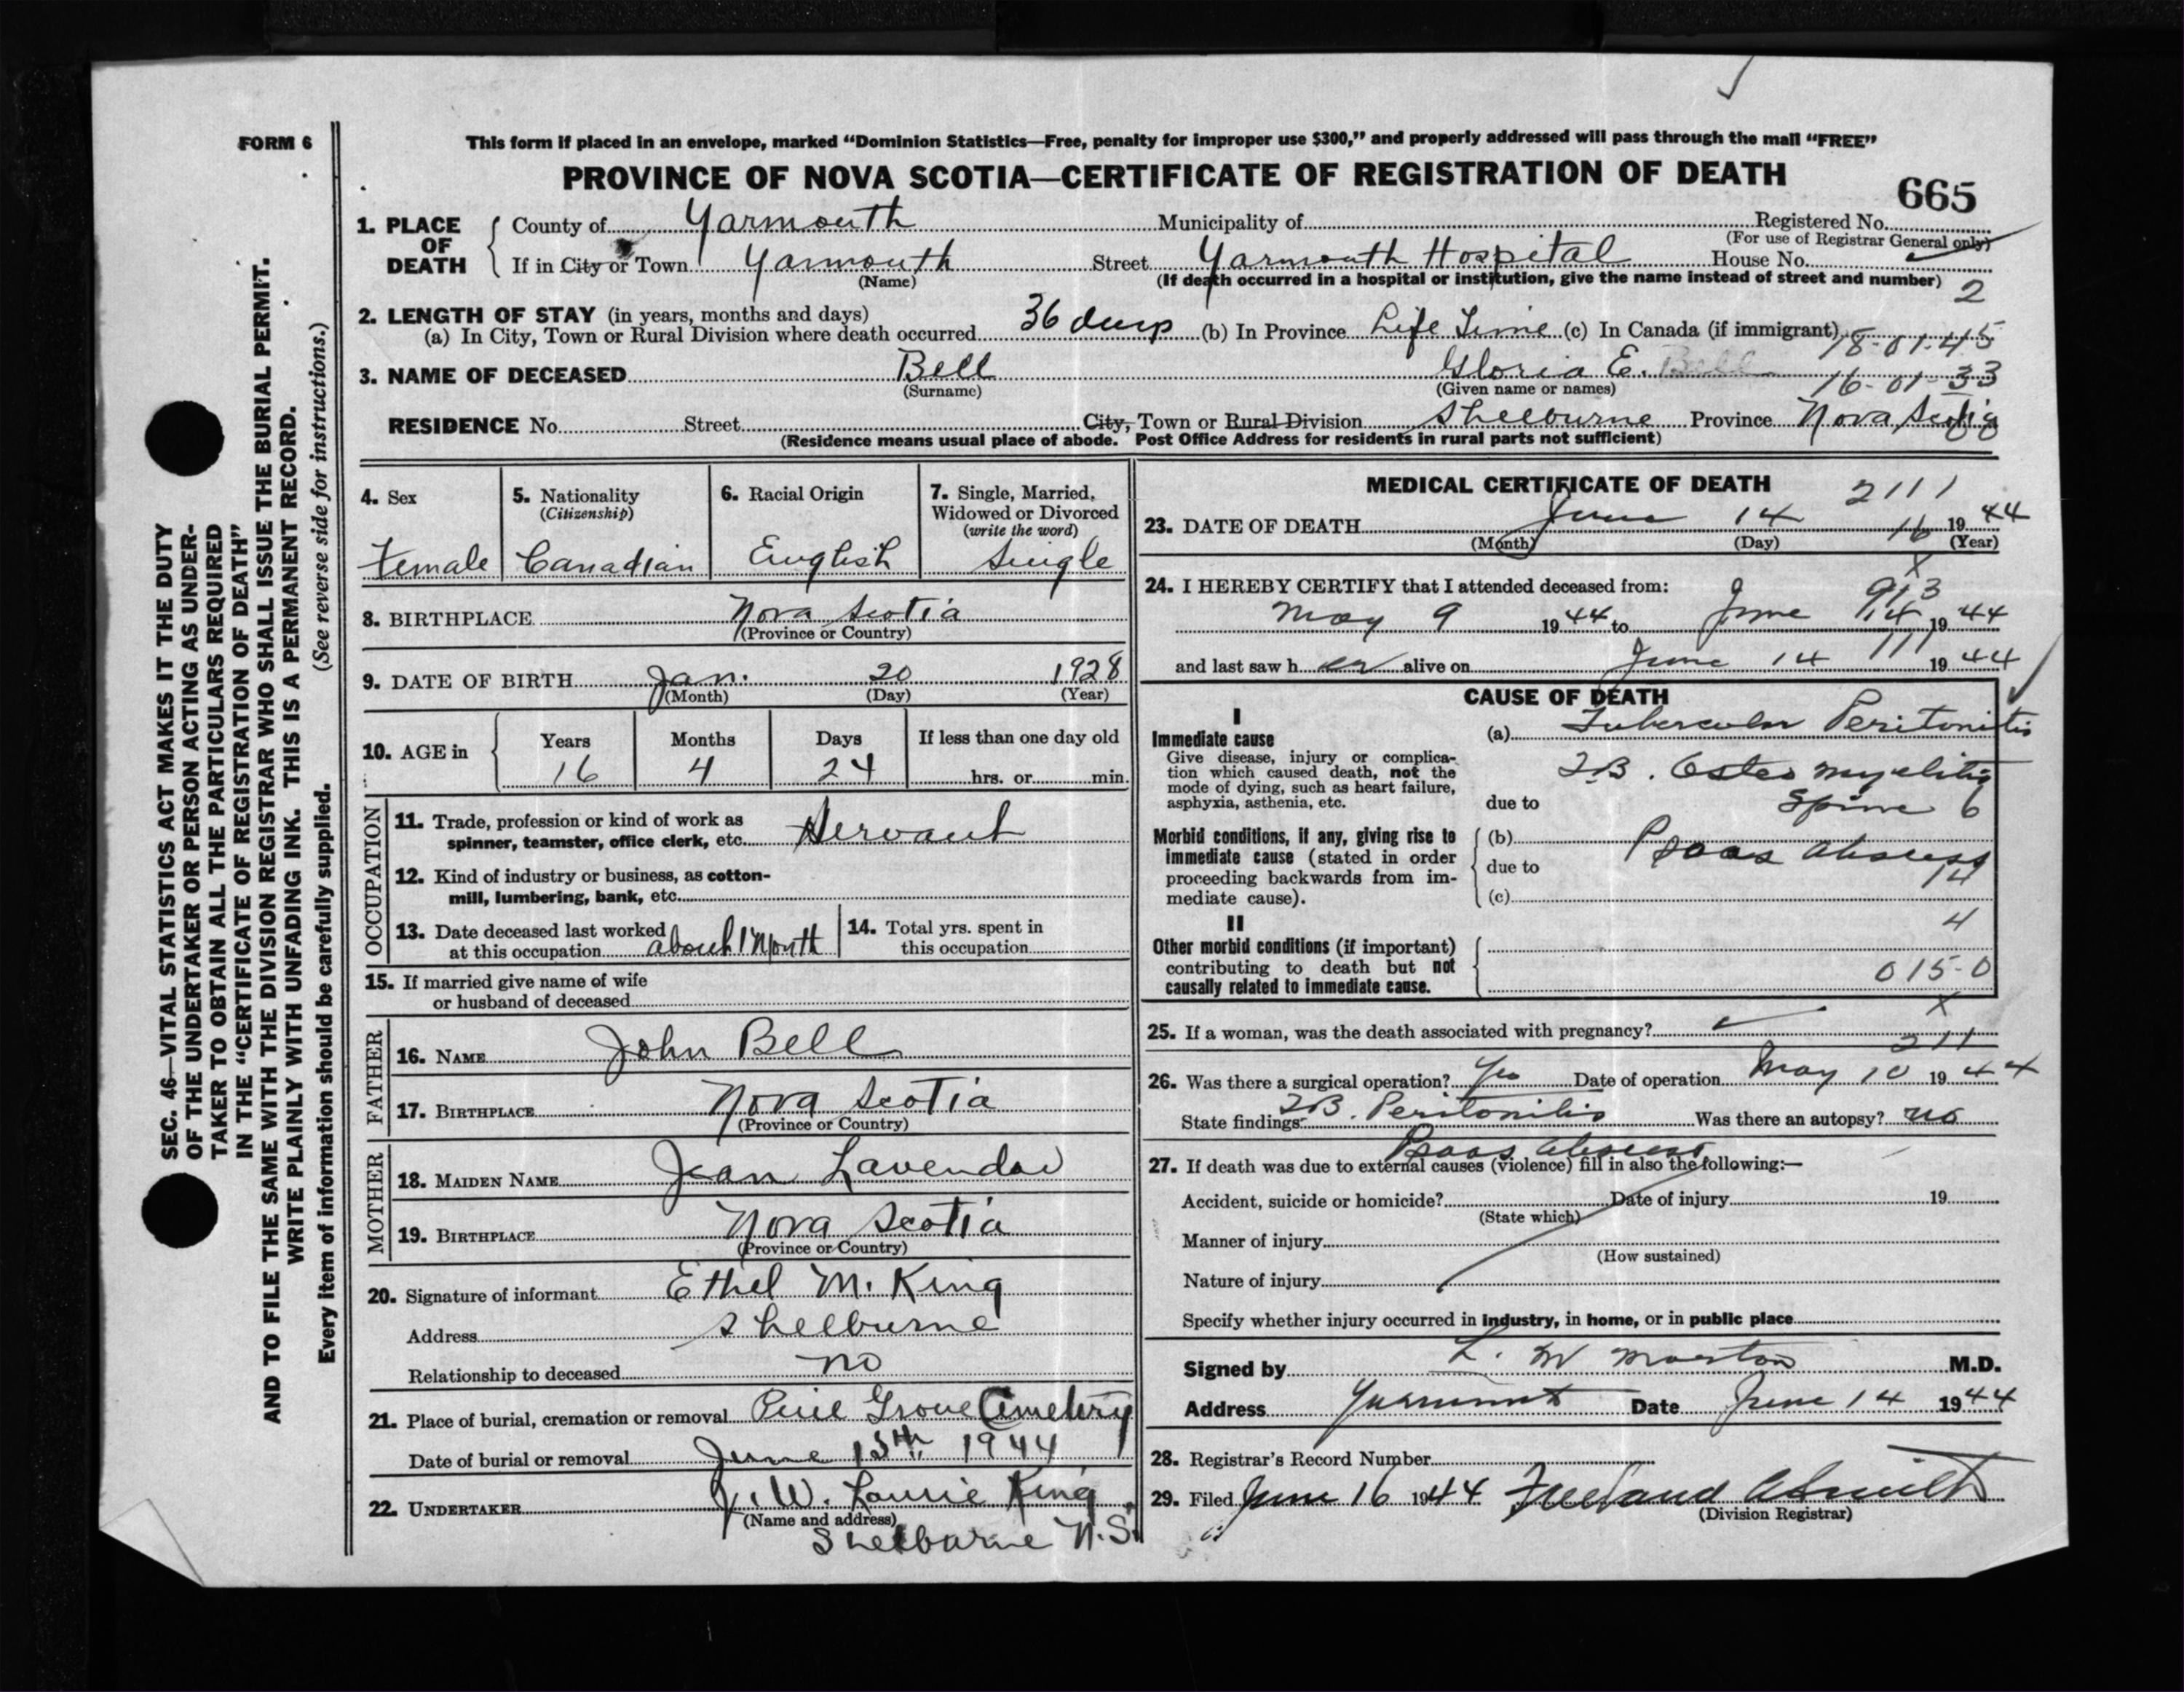 FORM 6
This form if placed in an envelope, marked “Dominion Statistics—Free, penalty for improper use $300,” and properly addressed will pass through the mail “FREE”
PROVINCE OF NOVA SCOTIA—CERTIFICATE OF REGISTRATION OF DEATH
665
1. PLACE OF DEATH
County of Yarmouth Municipality of Registered No.
(For use of Registrar General only)
If in City or Town Yarmouth Street Yarmouth Hospital House No.
(Name) (If death occurred in a hospital or institution, give the name instead of street and number)
2
2. LENGTH OF STAY (in years, months and days)
(a) In City, Town or Rural Division where death occurred 36 days (b) In Province Life Time (c) In Canada (if immigrant)
18-01-45
3. NAME OF DECEASED Bell Gloria E. Bell
(Surname) (Given name or names)
16-01-33
RESIDENCE No. Street City, Town or Rural Division Shelburne Province Nova Scotia
(Residence means usual place of abode. Post Office Address for residents in rural parts not sufficient)
4. Sex
Female
5. Nationality
(Citizenship)
Canadian
6. Racial Origin
English
7. Single, Married, Widowed or Divorced
(write the word)
Single
8. BIRTHPLACE Nova Scotia
(Province or Country)
9. DATE OF BIRTH Jan. 20 1928
(Month) (Day) (Year)
10. AGE in Years Months Days If less than one day old
16 4 24 hrs. or min.
OCCUPATION
11. Trade, profession or kind of work as
spinner, teamster, office clerk, etc. Servant
12. Kind of industry or business, as cotton-
mill, lumbering, bank, etc.
13. Date deceased last worked
at this occupation about 1 Month
14. Total yrs. spent in
this occupation
15. If married give name of wife
or husband of deceased
FATHER
16. NAME John Bell
17. BIRTHPLACE Nova Scotia
(Province or Country)
MOTHER
18. MAIDEN NAME Jean Lavendar
19. BIRTHPLACE Nova Scotia
(Province or Country)
20. Signature of informant Ethel M. King
Address Shelburne
Relationship to deceased no
21. Place of burial, cremation or removal Pine Grove Cemetery
Date of burial or removal June 15th 1944
22. UNDERTAKER W. Laurie King
(Name and address)
Shelburne N.S.
MEDICAL CERTIFICATE OF DEATH
2111
23. DATE OF DEATH June 14 19 44
(Month) (Day) (Year)
16
24. I HEREBY CERTIFY that I attended deceased from:
May 9 19 44 to June 14 19 44
and last saw h er alive on June 14 19 44
CAUSE OF DEATH
I
Immediate cause
Give disease, injury or complica-
tion which caused death, not the
mode of dying, such as heart failure,
asphyxia, asthenia, etc.
(a) Tubercular Peritonitis
T.B. Osteo myelitis
due to Spine 6
Morbid conditions, if any, giving rise to
immediate cause (stated in order
proceeding backwards from im-
mediate cause).
(b) Psoas abscess
due to
14
(c)
II
4
Other morbid conditions (if important)
contributing to death but not
causally related to immediate cause.
015-0
X
25. If a woman, was the death associated with pregnancy?
211
26. Was there a surgical operation? Yes Date of operation May 10 19 44
State findings T.B. Peritonitis Was there an autopsy? no
Psoas abscess
27. If death was due to external causes (violence) fill in also the following:—
Accident, suicide or homicide? Date of injury 19
(State which)
Manner of injury
(How sustained)
Nature of injury
Specify whether injury occurred in industry, in home, or in public place
Signed by L. M Morton M.D.
Address Yarmouth Date June 14 1944
28. Registrar's Record Number
29. Filed June 16 1944
(Division Registrar)
SEC. 46—VITAL STATISTICS ACT MAKES IT THE DUTY
OF THE UNDERTAKER OR PERSON ACTING AS UNDER-
TAKER TO OBTAIN ALL THE PARTICULARS REQUIRED
IN THE “CERTIFICATE OF REGISTRATION OF DEATH”
AND TO FILE THE SAME WITH THE DIVISION REGISTRAR WHO SHALL ISSUE THE BURIAL PERMIT.
WRITE PLAINLY WITH UNFADING INK. THIS IS A PERMANENT RECORD.
Every item of information should be carefully supplied. (See reverse side for instructions.)